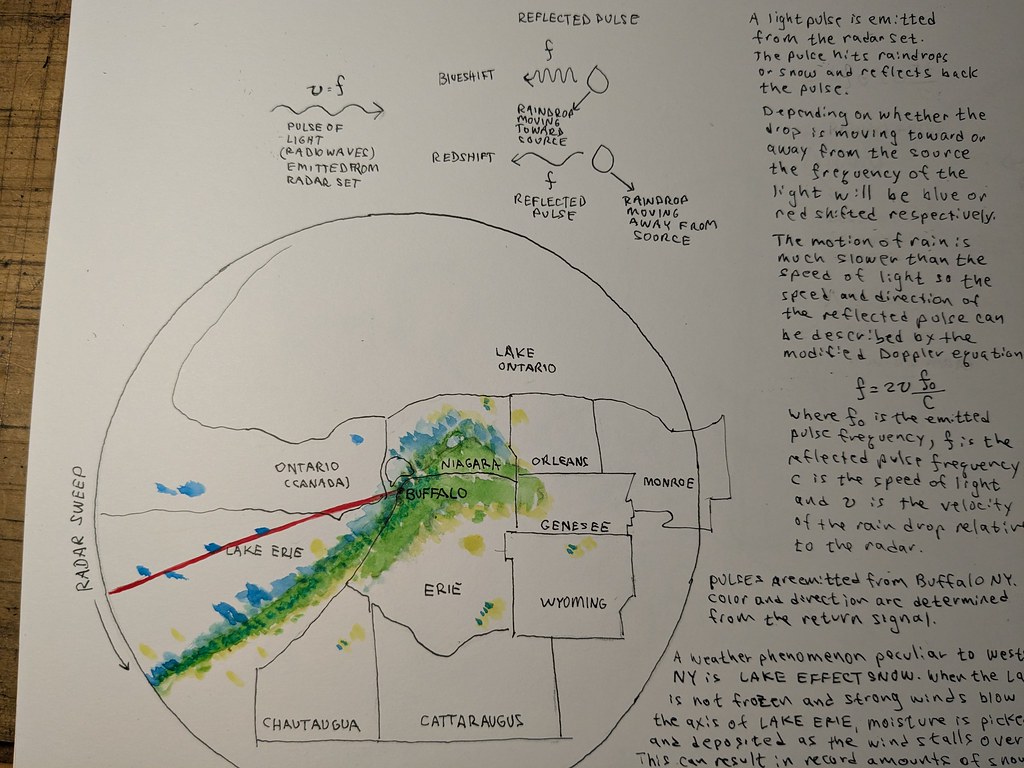 REFLECTED PULSE
f
BLUESHIFT
RAINDROP
MOVING
TOWARD
SOURCE
v = f
PULSE OF
LIGHT
(RADIO WAVES)
EMITTED FROM
RADAR SET
REDSHIFT
f
REFLECTED
PULSE
RAINDROP
MOVING
AWAY FROM
SOORCE
A light pulse is emitted
from the radar set.
The pulse hits raindrops
or snow and reflects back
the pulse.
Depending on whether the
drop is moving toward or
away from the source
the frequency of the
light will be blue or
red shifted respectively.
The motion of rain is
much slower than the
speed of light so the
speed and direction of
the reflected pulse can
be described by the
modified Doppler equation
f = 2v f₀/C
where f₀ is the emitted
pulse frequency, f is the
reflected pulse frequency
C is the speed of light
and v is the velocity
of the rain drop relativ
to the radar.
PULSES are emitted from Buffalo NY.
Color and direction are determined
from the return signal.
A weather phenomenon peculiar to West
NY is LAKE EFFECT SNOW. When the La
is not frozen and strong winds blow
the axis of LAKE ERIE, moisture is picke
and deposited as the wind stalls over
This can result in record amounts of snow
LAKE
ONTARIO
ONTARIO
(CANADA)
NIAGARA
ORLEANS
MONROE
BUFFALO
GENESEE
LAKE ERIE
ERIE
WYOMING
CHAUTAUGUA
CATTARAUGUS
RADAR SWEEP